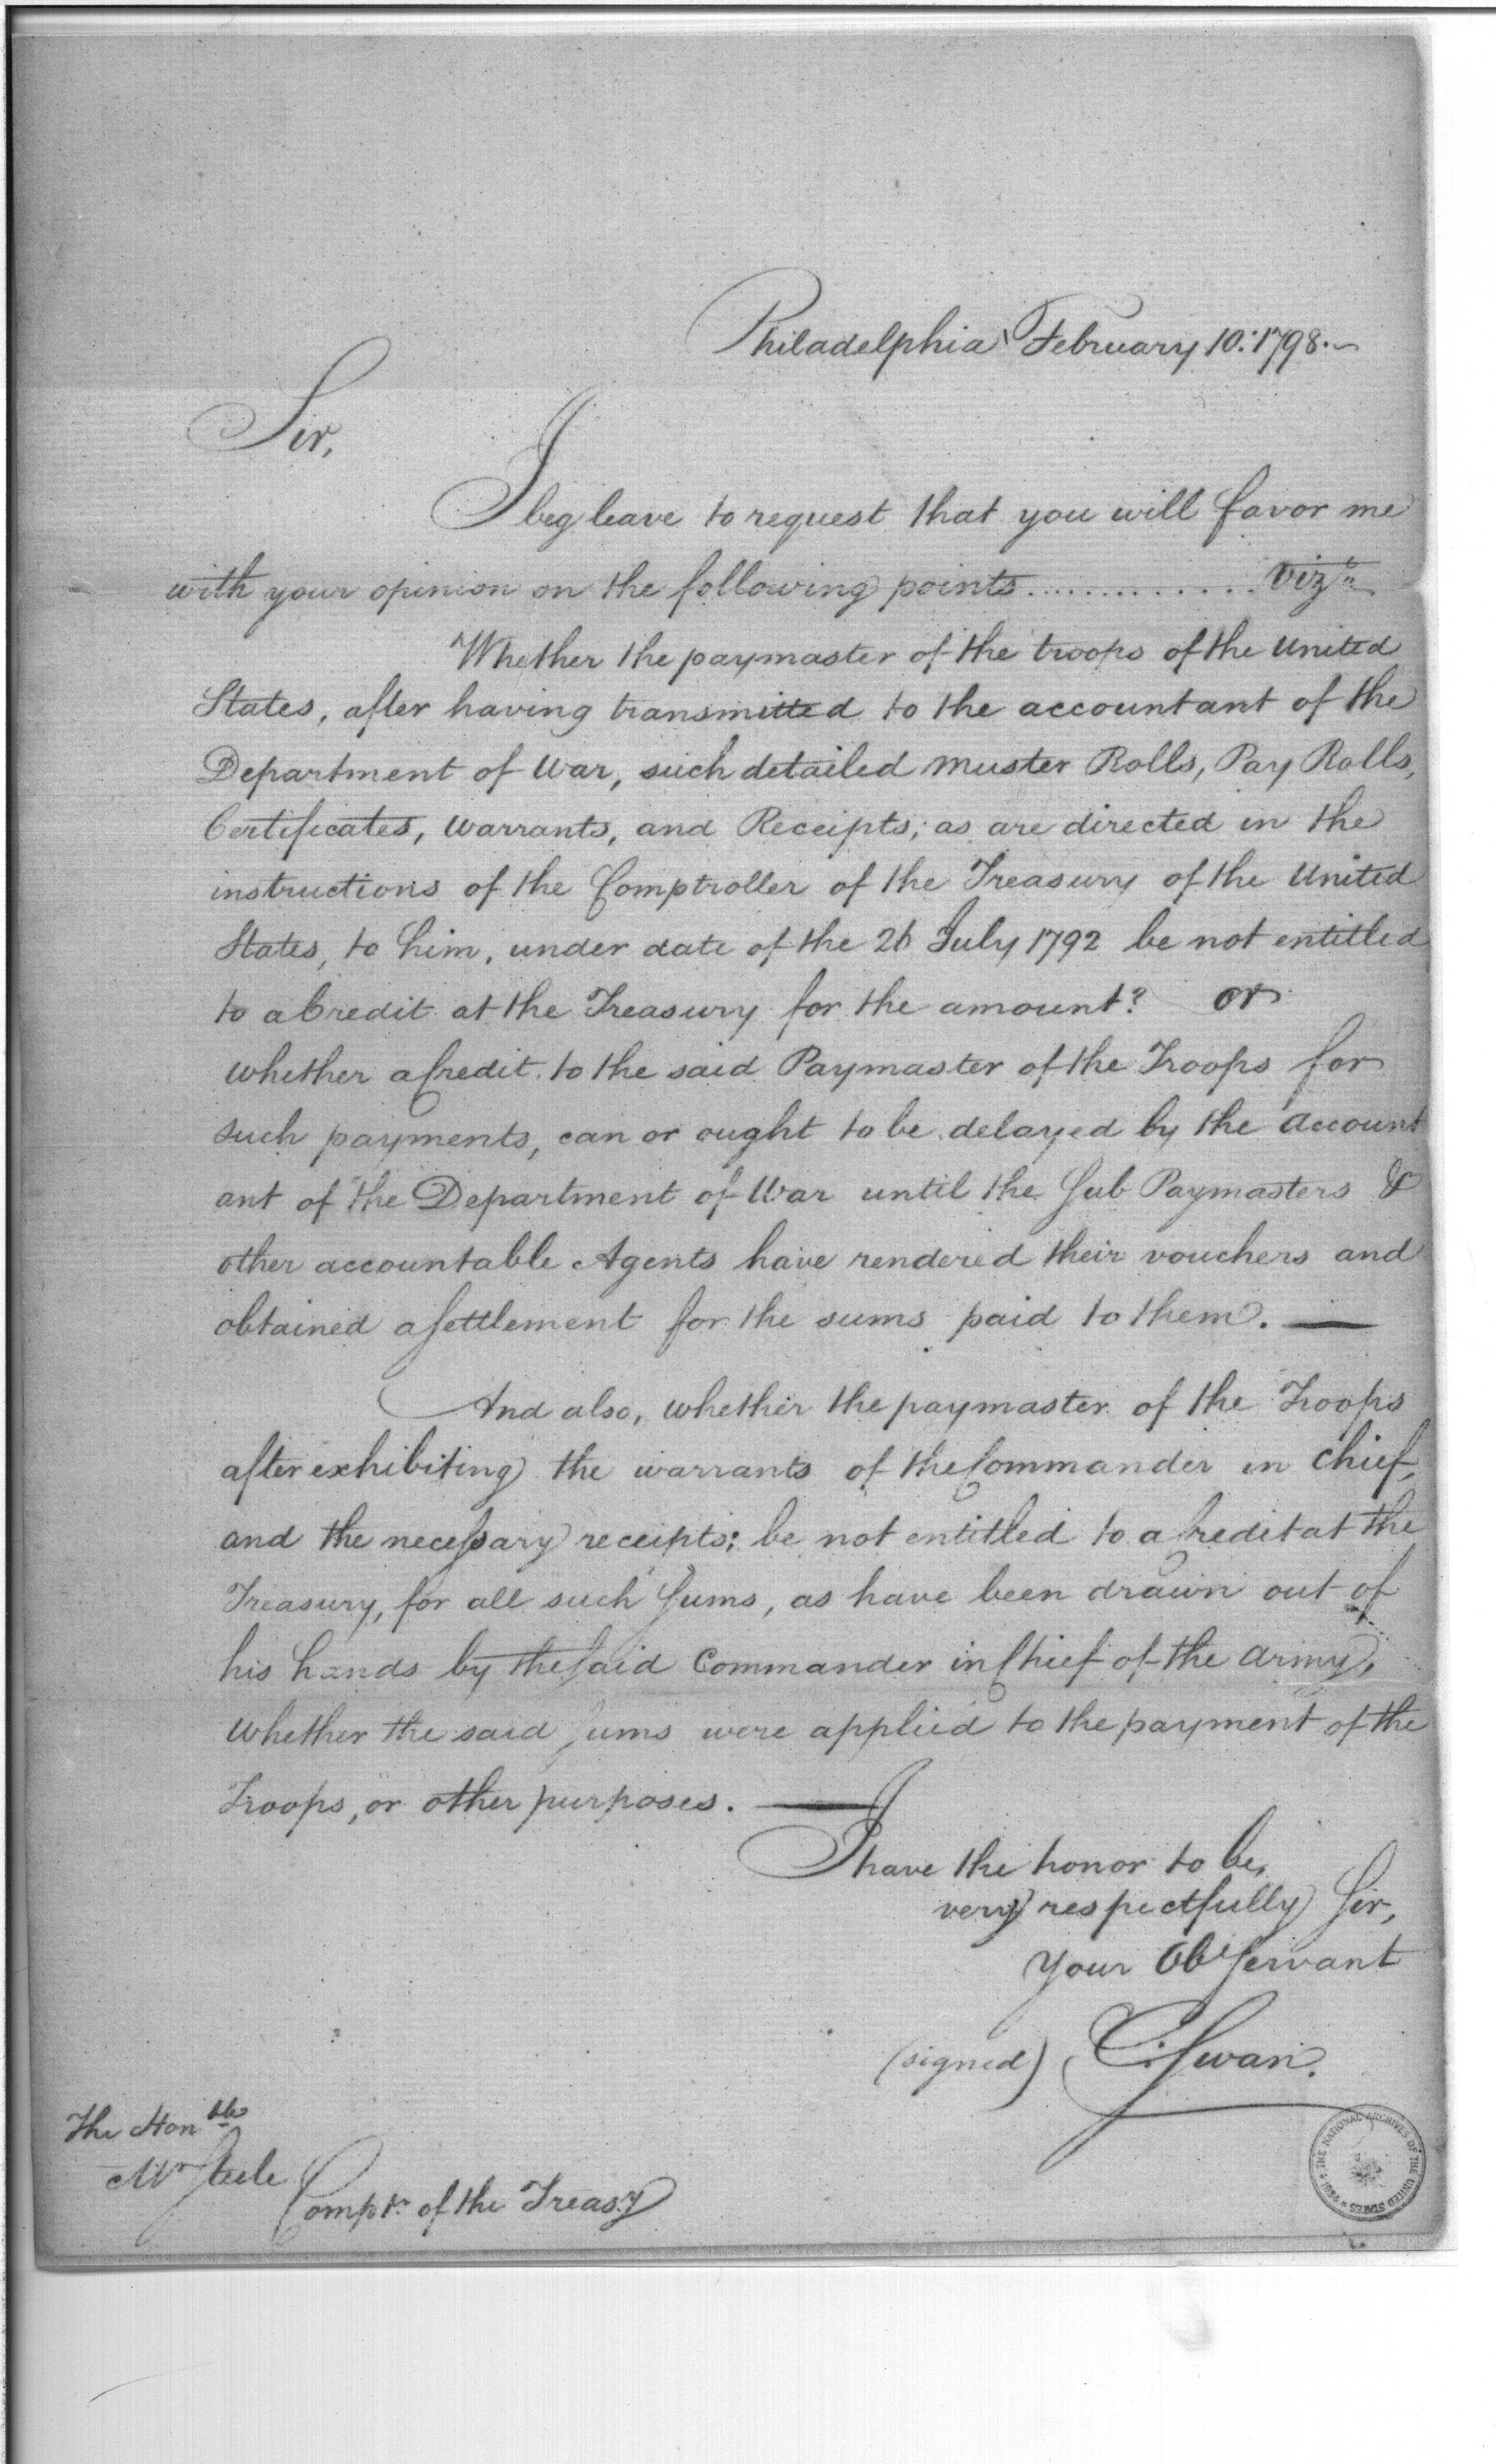 Philadelphia February 10: 1798.
Sir,
I beg leave to request that you will favor me
with your opinion on the following points............. Viz.
Whether the paymaster of the troops of the United
States, after having transmitted to the accountant of the
Department of War, such detailed muster Rolls, Pay Rolls,
Certificates, Warrants, and Receipts; as are directed in the
instructions of the Comptroller of the Treasury of the United
States, to him, under date of the 26 July 1792 be not entitled
to a Credit at the Treasury for the amount? or
whether a Credit to the said Paymaster of the Troops for
such payments, can or ought to be delayed by the Account
ant of the Department of War until the Sub Paymasters &
other accountable Agents have rendered their vouchers and
obtained a Settlement for the sums paid to them. —
And also, whether the paymaster of the Troops
after exhibiting the warrants of the Commander in Chief,
and the necessary receipts; be not entitled to a Credit at the
Treasury, for all such Sums, as have been drawn out of
his hands by the Said Commander in Chief of the Army,
whether the said Sums were applied to the payment of the
Troops, or other purposes. —
I have the honor to be,
very respectfully Sir,
Your Obt Servant
(signed) C. Swan.
The Honble
Mr Steele
Comptr. of the Treasy
THE NATIONAL ARCHIVES OF THE UNITED STATES * 1934 *